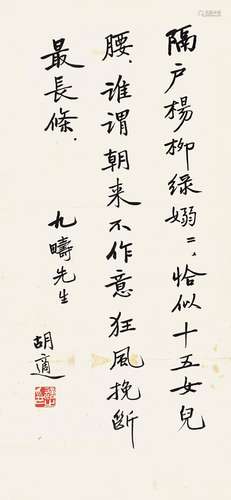 隔户楊柳绿嫋〻、恰似十五女兒
腰、谁谓朝来不作意狂風挽断
最長條.
九疇先生
胡適